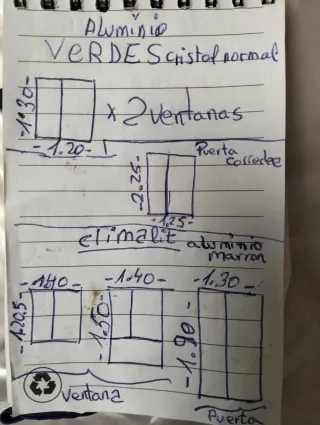 Aluminio
VERDES cristal normal
-1'30-
x 2 ventanas
-1.20-
Puerta
corredee
-2.25-
-1.25-
climalit aluminio
marron
-1.40- -1.40- -1.30-
-1.20,5- -1.50- -1.90-
ventana
Puerta